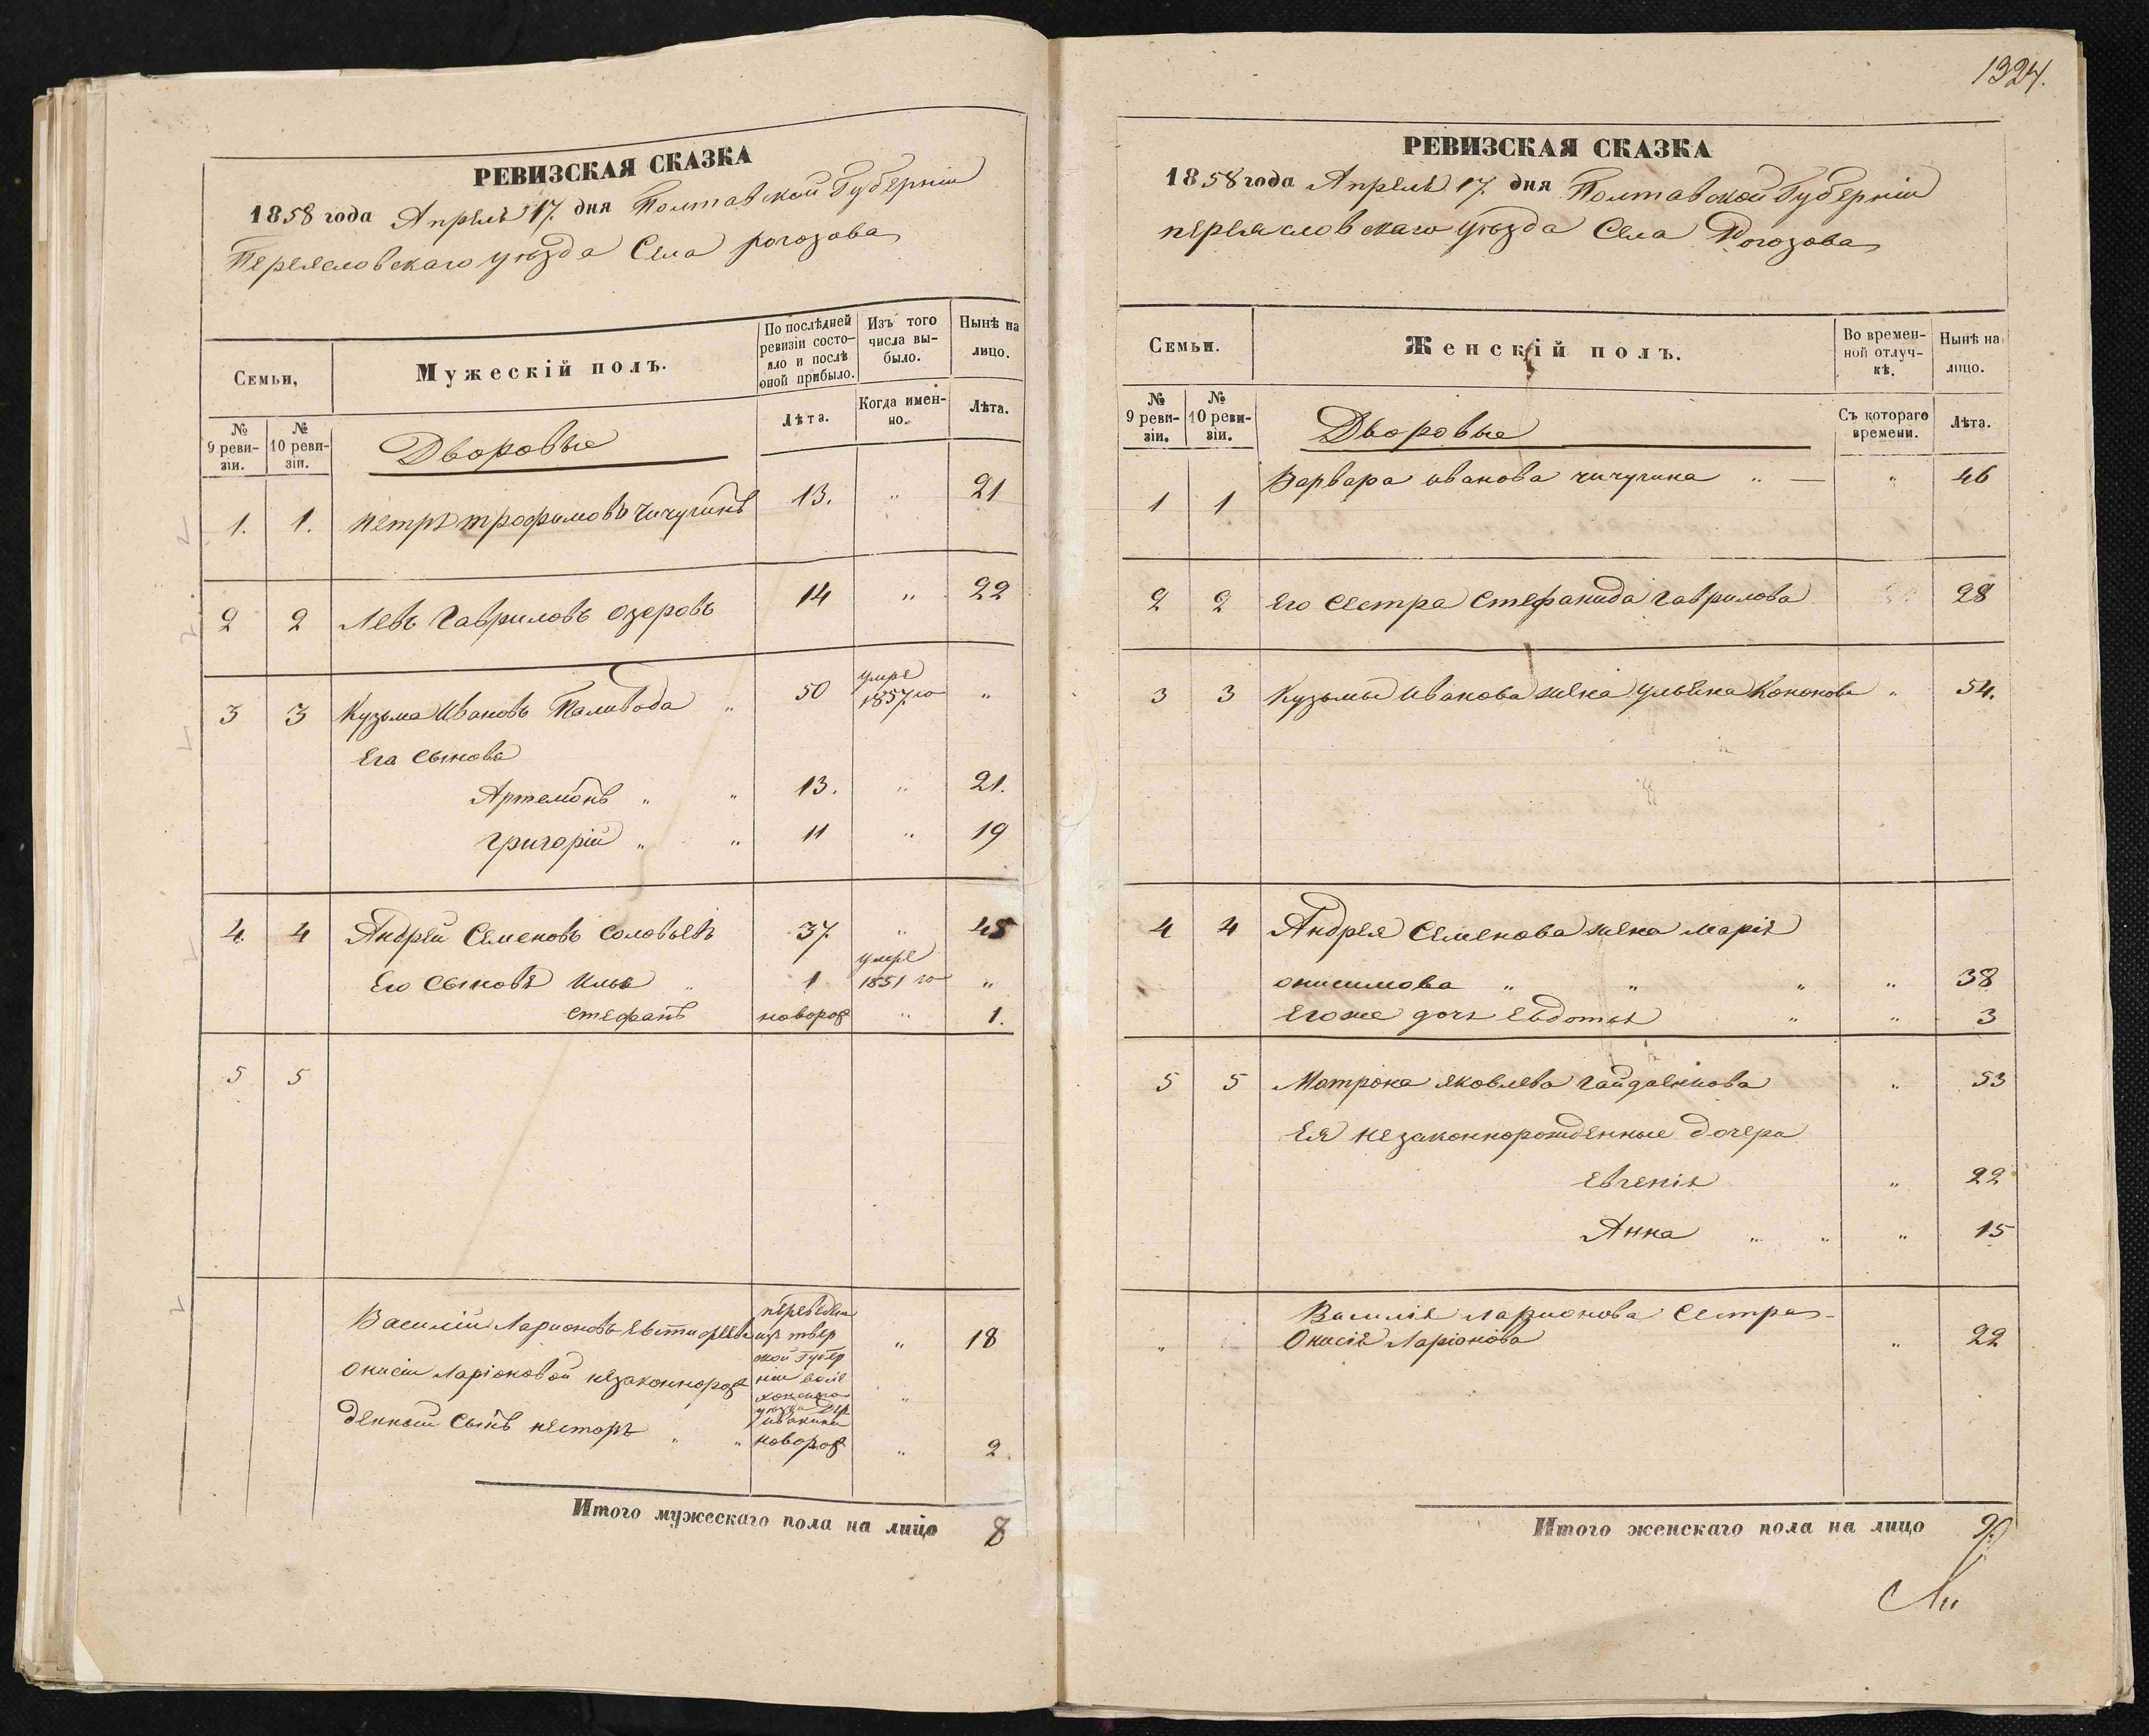 1324.
РЕВИЗСКАЯ СКАЗКА
1858 года Апреля 17. дня Полтавской Губерніи
Переясловскаго уѣзда Села рогозова
Семьи,
Мужескій полъ.
По послѣдней ревизіи состояло и послѣ оной прибыло.
Изъ того числа выбыло.
Нынѣ на лицо.
№ 9 ревизіи.
№ 10 ревизіи.
Дворовые
Лѣта.
Когда именно.
Лѣта.
1. 1. Петръ трофимовъ Чичугинъ 13. " 21
2 2 Левъ Гавриловъ Озеровъ 14 " 22
3 3 Кузьма Ивановъ Паливода " 50 умре 1857 го "
Его сынова
Артемонъ " " 13. " 21.
Григорій " " 11 " 19
4. 4 Андрей Семеновъ Соловьевъ 37. " 45
Его сыновя Илья " 1 умре 1851 го "
Стефанъ новорож " 1.
5 5
Василій Ларионовъ " 18
переведен
из твер
ской Губер
ніи
Онисіи Ларіоновой незаконнорож "
уезда Дер
денный сынъ несторъ " " новорож " 2.
Итого мужескаго пола на лицо 8
РЕВИЗСКАЯ СКАЗКА
1858 года Апреля 17. дня Полтавской Губерніи
переясловскаго уѣзда Села Рогозова
Семьи.
Женскій полъ.
Во временной отлучкѣ.
Нынѣ на лицо.
№ 9 ревизіи.
№ 10 ревизіи.
Дворовые
Съ котораго времени.
Лѣта.
1 1 Варвара иванова чичугина " — " 46
2 2 Его сестра Стефанида гаврилова 28
3 3 Кузьмы иванова жена ульяна Кононова " 54.
4 4 Андрея Семенова жена марія
онисимова " " " " 38
Его же дочь Евдотья " " 3
5 5 Матрона яковлева гайдаенкова " 53
Ея незаконнорожденные дочери
Евгенія " 22
Анна " " " 15
Василія ларионова Сестра
" Онисія Ларіонова " 22
Итого женскаго пола на лицо 9.